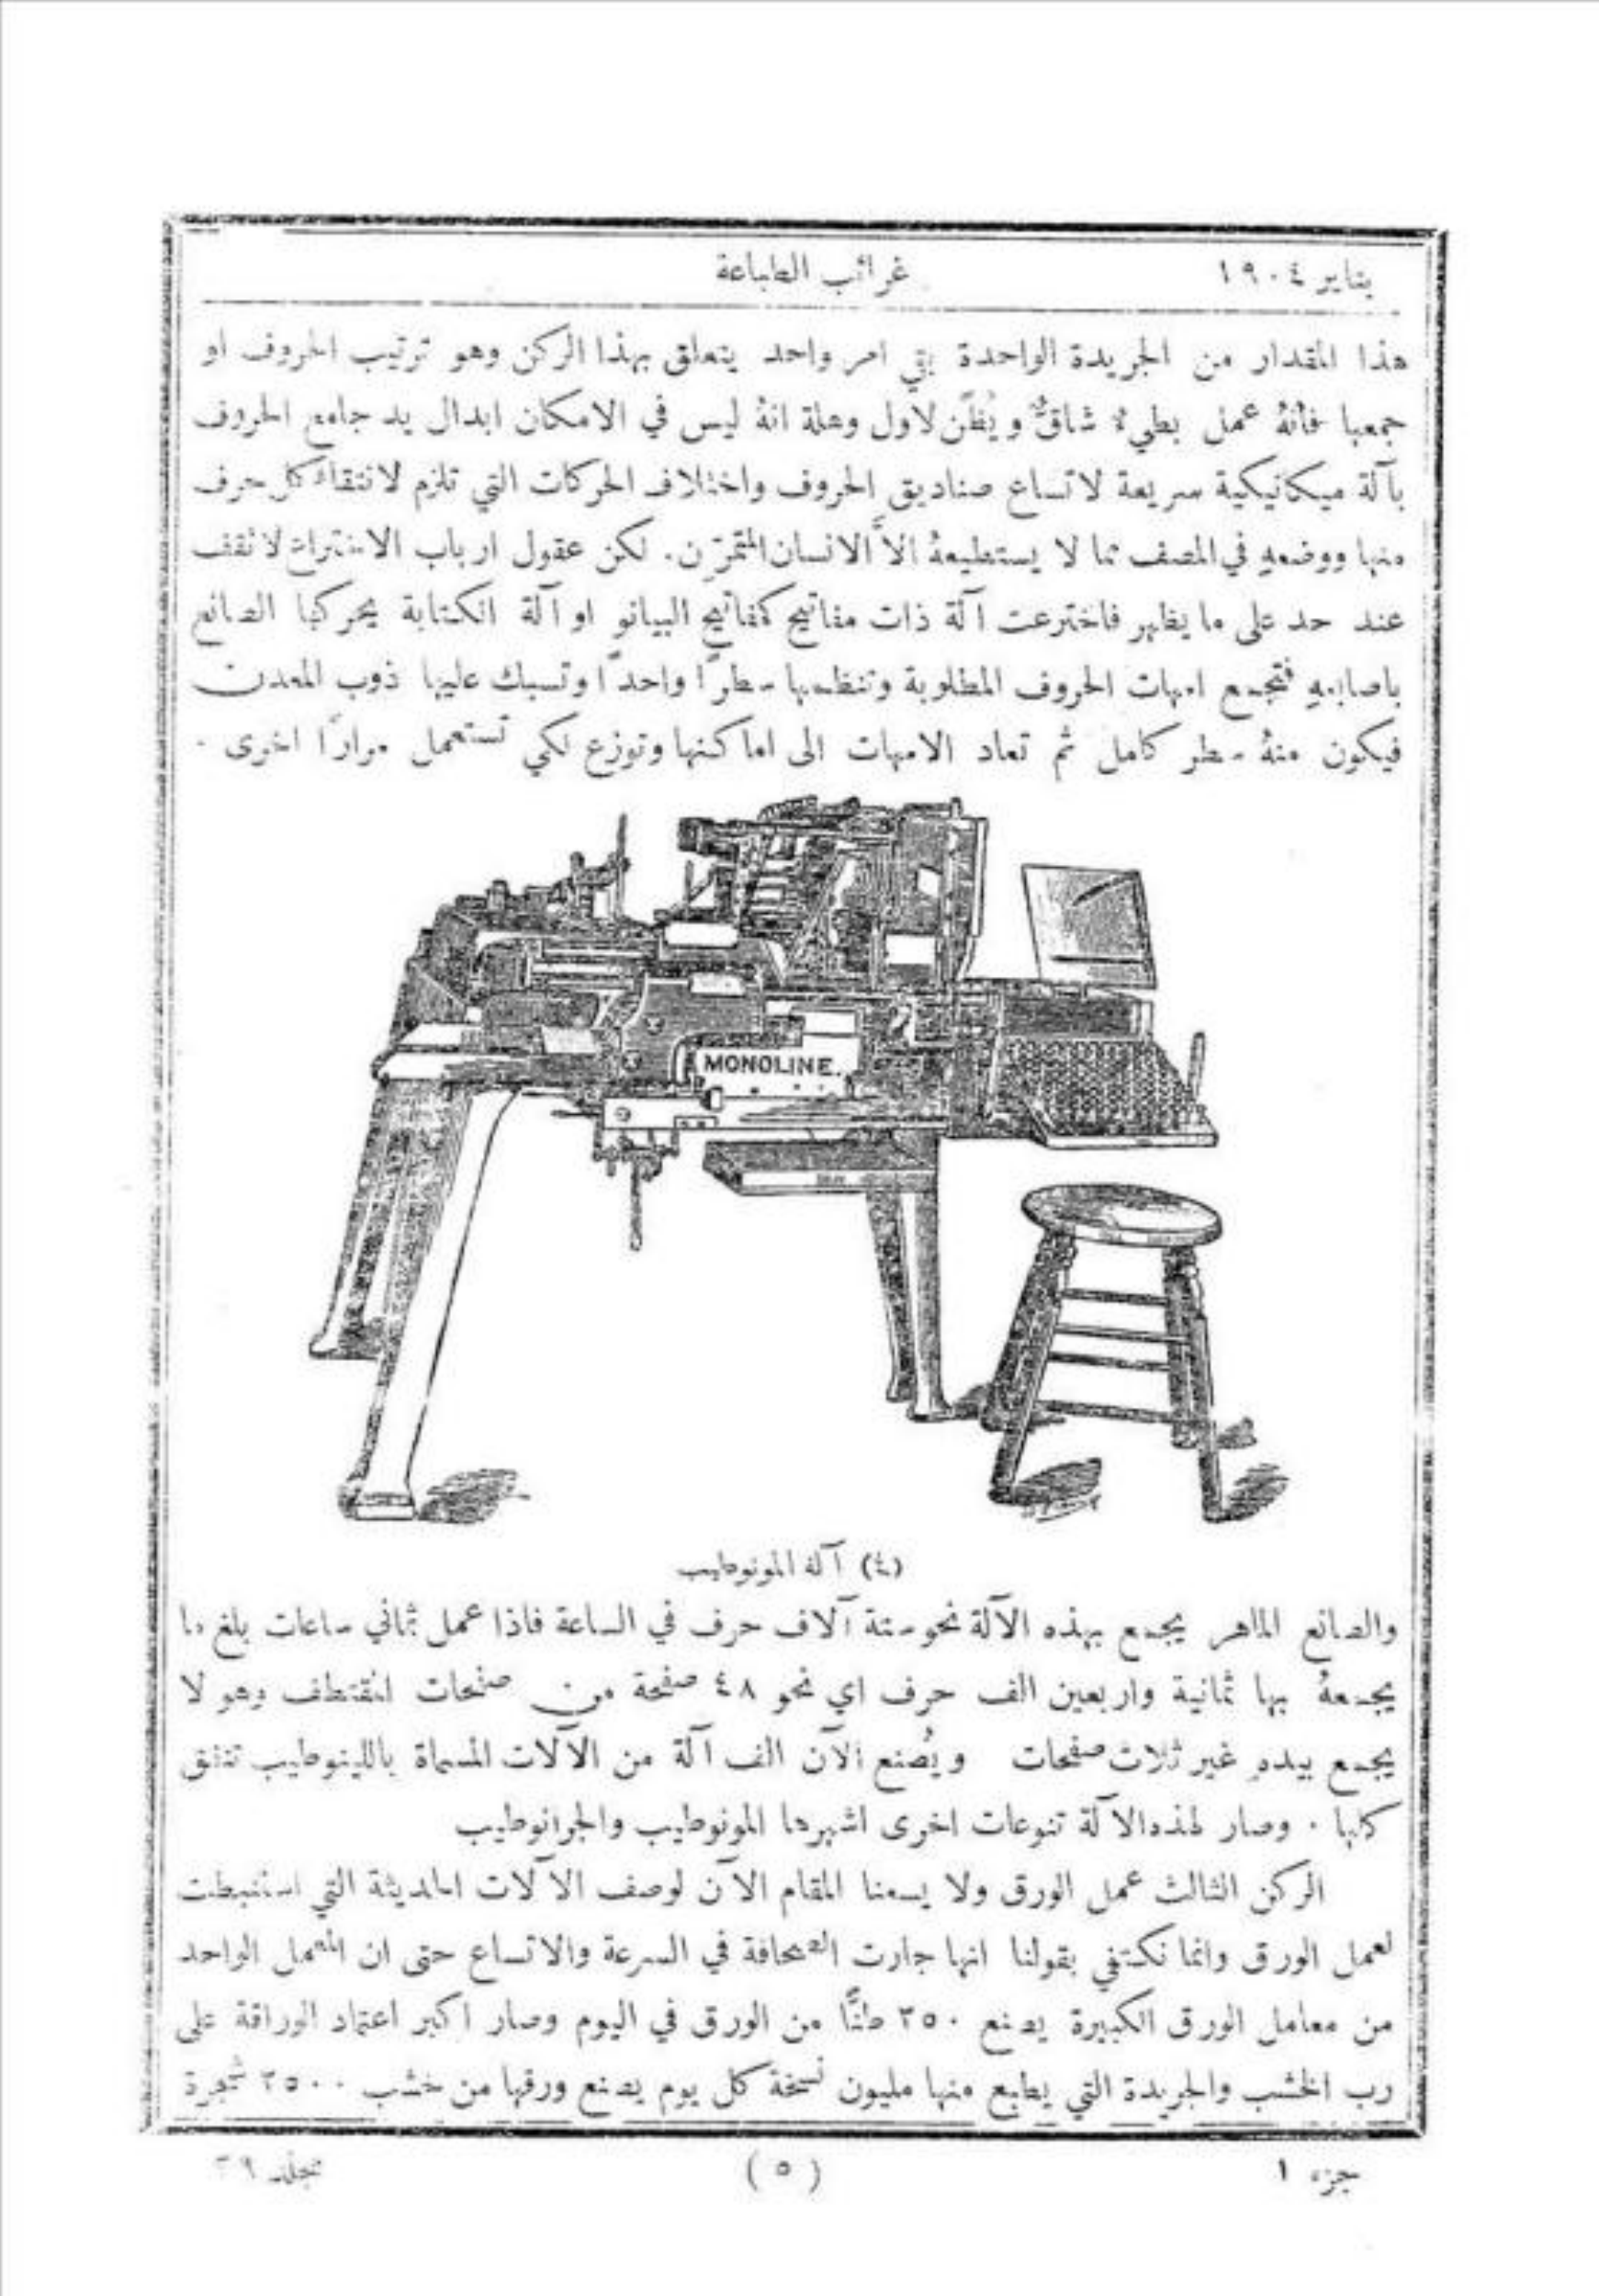 يناير ١٩٠٤
غرائب الطباعة
هذا المقدار من الجريدة الواحدة بقي امر واحد يتعلق بهذا الركن وهو ترتيب الحروف او
جمعها فأنهُ عمل بطيءٌ شاقٌّ ويُظَن لاول وهلة انهُ ليس في الامكان ابدال يد جامع الحروف
بآلة ميكانيكية سريعة لاتساع صناديق الحروف واختلاف الحركات التي تلزم لانتقاء كل حرف
منها ووضعهِ في المصف مما لا يستطيعهُ الاَّ الانسان المتمرّن. لكن عقول ارباب الاختراع لا نقف
عند حد على ما يظهر فاخترعت آلة ذات مفاتيح كمفاتيح البيانو او آلة الكتابة يحركها الصانع
باصابعهِ فتجمع امهات الحروف المطلوبة وتنظمها سطرًا واحدًا وتسبك عليها ذوب المعدن
فيكون منهُ سطر كامل ثم تعاد الامهات الى اماكنها وتوزع لكي تستعمل مرارًا اخرى ·
MONOLINE.
(٤) آلة المونوطيب
والصانع الماهر يجمع بهذه الآلة نحو ستة آلاف حرف في الساعة فاذا عمل ثماني ساعات بلغ ما
يجمعهُ بها ثمانية واربعين الف حرف اي نحو ٤٨ صفحة من صفحات المقتطف وهو لا
يجمع بيدهِ غير ثلاث صفحات ويُصنع الآن الف آلة من الآلات المسماة باللينوطيب
كلها · وصار لهذه الآلة تنوعات اخرى اشهرها المونوطيب والجرانوطيب
الركن الثالث عمل الورق ولا يسعنا المقام الآن لوصف الآلات الحديثة التي استنبطت
لعمل الورق وانما نكتفي بقولنا انها جارت الصحافة في السرعة والاتساع حتى ان المعمل الواحد
من معامل الورق الكبيرة يصنع ٢٥٠ طنًّا من الورق في اليوم وصار اكبر اعتماد الوراقة على
رب الخشب والجريدة التي يطبع منها مليون نسخة كل يوم يصنع ورقها من خشب ٢٥٠٠ شجرة
جزء ١
(٥)
مجلد